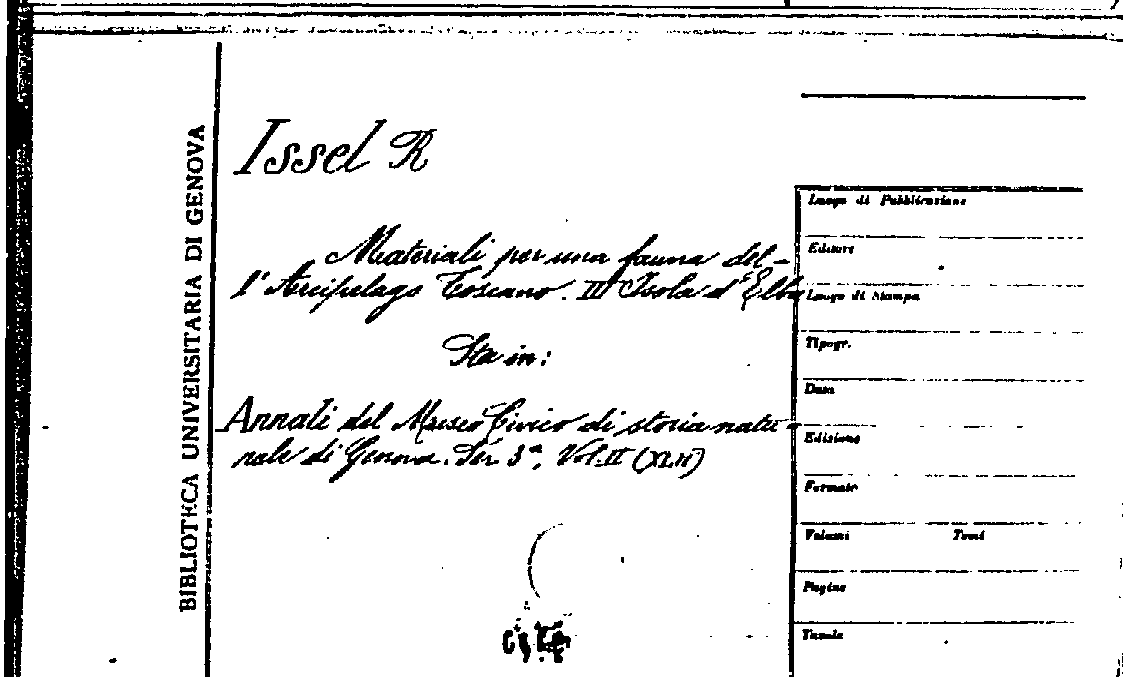 BIBLIOTECA UNIVERSITARIA DI GENOVA
Issel R
Materiali per una fauna del-
l'Arcipelago Toscano. III Isola d'Elba
Sta in:
Annali del Museo Civico di storia natu-
rale di Genova. Ser. 3ª, Vol. II (XLII)
Luogo di Pubblicazione
Editore
Luogo di Stampa
Tipogr.
Data
Edizione
Formato
Volumi Tomi
Pagine
Tavole